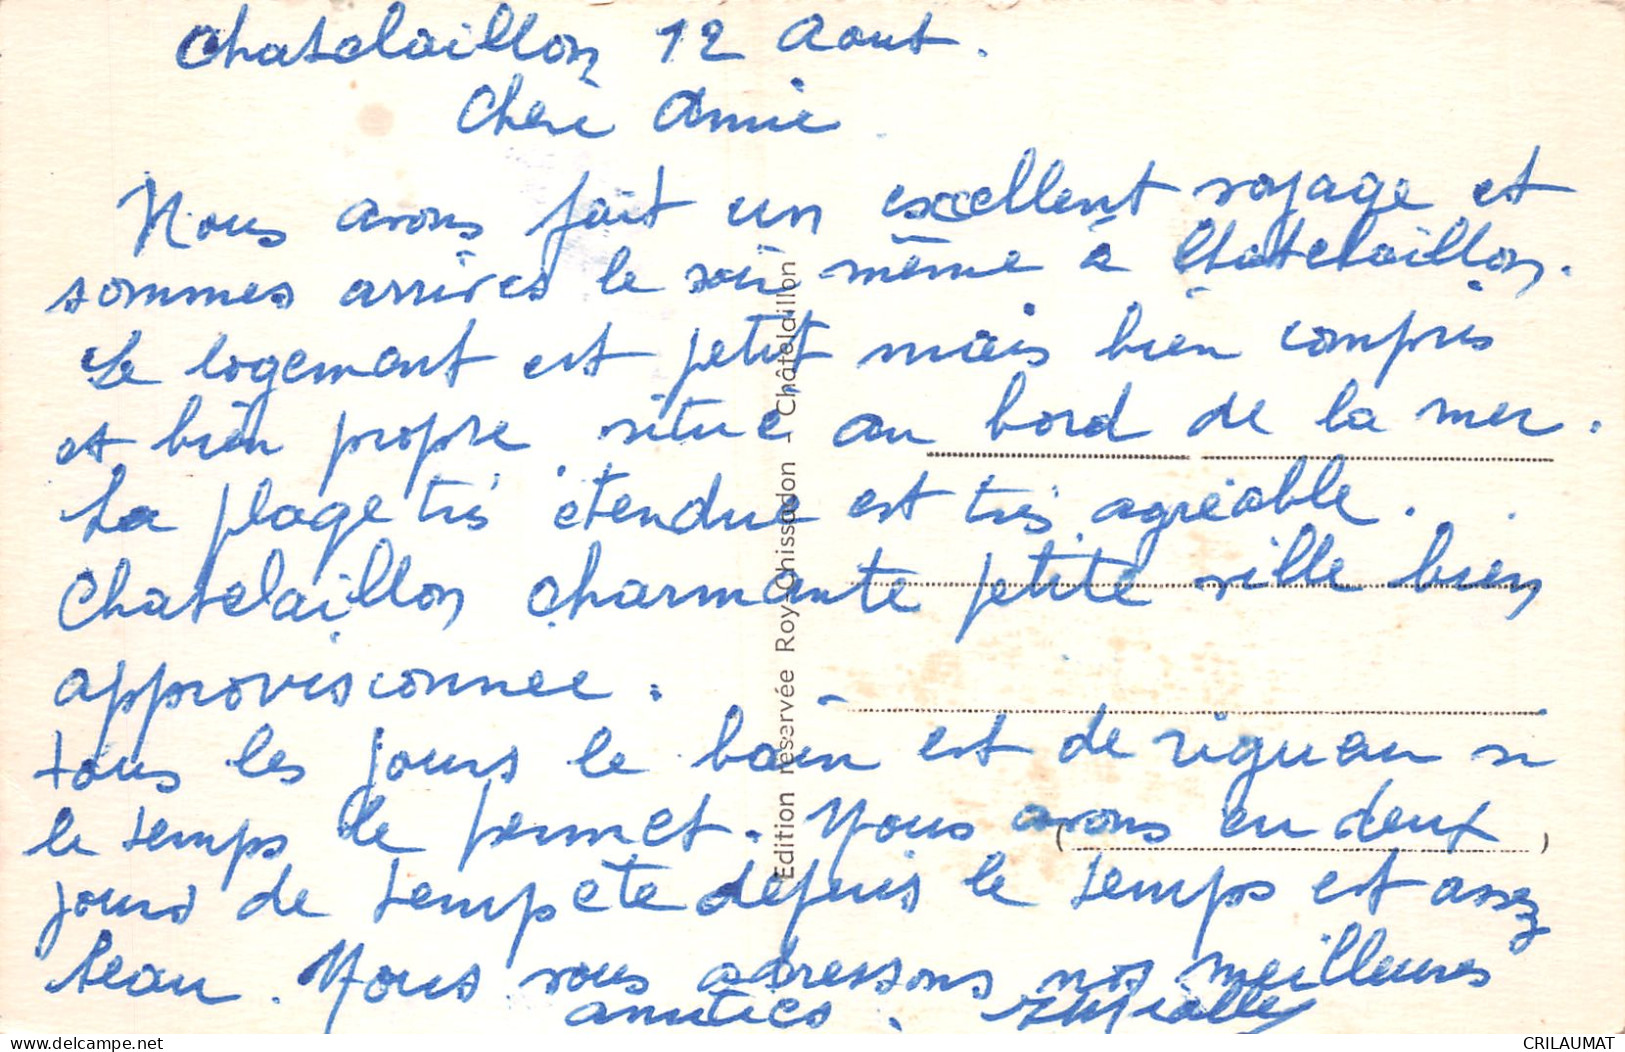 Chatelaillon 12 Aout.
Chère Amie
Nous avons fait un excellent voyage et
sommes arrivés le soir même à Chatelaillon.
Le logement est petit mais bien compris
et bien propre situé au bord de la mer.
La plage très étendue est très agréable.
Chatelaillon charmante petite ville bien
approvisionnée.
tous les jours le bain est de riguau si
le temps le permet. Nous avons eu deux
jours de tempete depuis le temps est assez
beau. Nous vous adressons nos meilleures
amitiés.
Edition réservée Roy-Chissadon - Châtelaillon
delcampe.net
CRILAUMAT